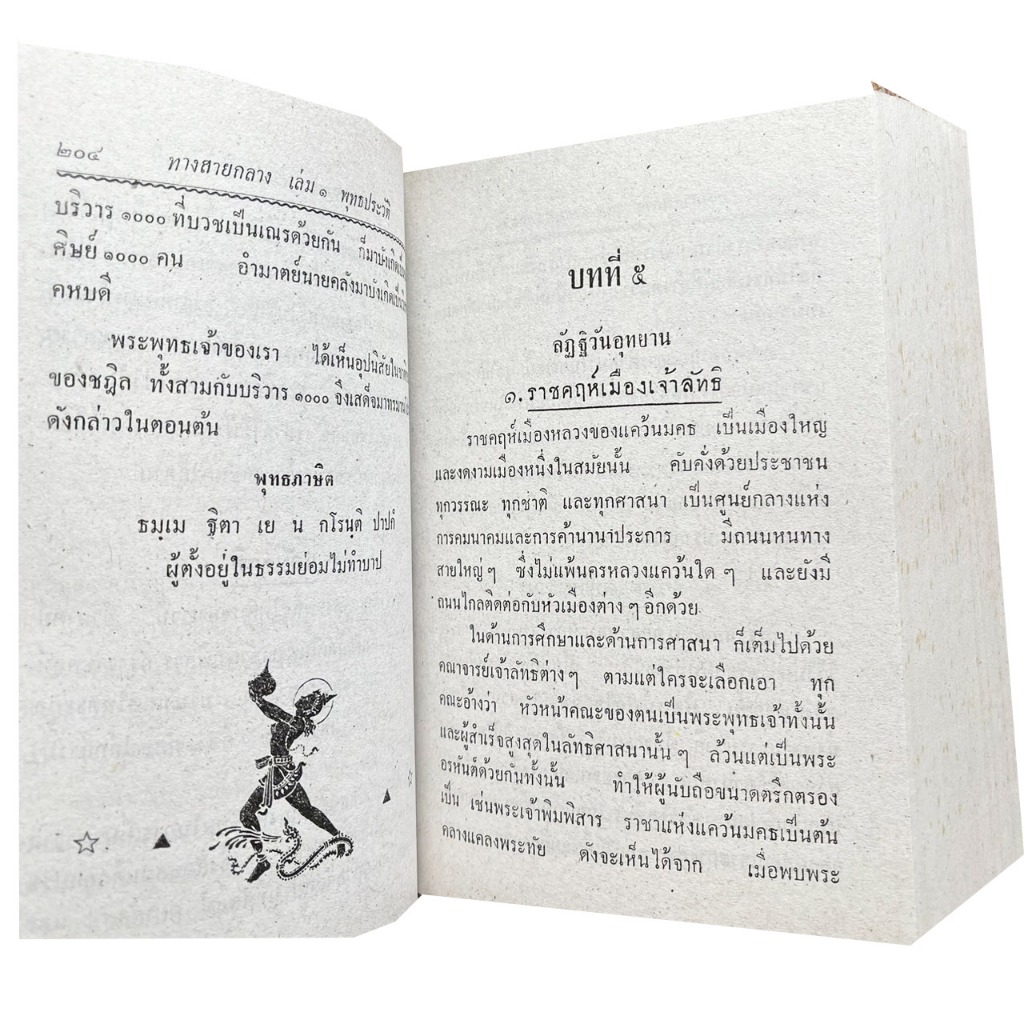 ๒๐๔ ทางสายกลาง เล่ม ๑ พุทธประวัติ
บริวาร ๑๐๐๐ ที่บวชเป็นเณรด้วยกัน ก็มาบังเกิดเป็น
ศิษย์ ๑๐๐๐ คน อำมาตย์นายคลังมาบังเกิดเป็น
คหบดี
พระพุทธเจ้าของเรา ได้เห็นอุปนิสัยใน
ของชฎิล ทั้งสามกับบริวาร ๑๐๐๐ จึงเสด็จมาทรมาน
ดังกล่าวในตอนต้น
พุทธภาษิต
ธมฺเม ฐิตา เย น กโรนฺติ ปาปกํ
ผู้ตั้งอยู่ในธรรมย่อมไม่ทำบาป
บทที่ ๕
ลัฏฐิวันอุทยาน
๑. ราชคฤห์เมืองเจ้าลัทธิ
ราชคฤห์เมืองหลวงของแคว้นมคธ เป็นเมืองใหญ่
และงดงามเมืองหนึ่งในสมัยนั้น คับคั่งด้วยประชาชน
ทุกวรรณะ ทุกชาติ และทุกศาสนา เป็นศูนย์กลางแห่ง
การคมนาคมและการค้านานาประการ มีถนนหนทาง
สายใหญ่ ๆ ซึ่งไม่แพ้นครหลวงแคว้นใด ๆ และยังมี
ถนนไกลติดต่อกับหัวเมืองต่าง ๆ อีกด้วย
ในด้านการศึกษาและด้านการศาสนา ก็เต็มไปด้วย
คณาจารย์เจ้าลัทธิต่าง ๆ ตามแต่ใครจะเลือกเอา ทุก
คณะอ้างว่า หัวหน้าคณะของตนเป็นพระพุทธเจ้าทั้งนั้น
และผู้สำเร็จสูงสุดในลัทธิศาสนานั้น ๆ ล้วนแต่เป็นพระ
อรหันต์ด้วยกันทั้งนั้น ทำให้ผู้นับถือขนาดตรึกตรอง
เป็น เช่นพระเจ้าพิมพิสาร ราชาแห่งแคว้นมคธเป็นต้น
คลางแคลงพระทัย ดังจะเห็นได้จาก เมื่อพบพระ